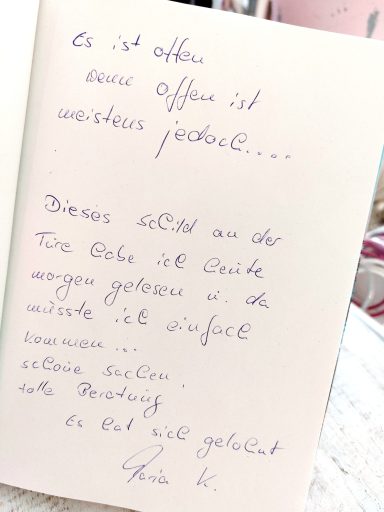 Es ist offen
wenn offen ist
meistens jedoch....
Dieses Schild an der
Türe habe ich heute
morgen gelesen u. da
müsste ich einfach
kommen...
schöne Sachen,
tolle Beratung
Es hat sich gelohnt
Maria K.